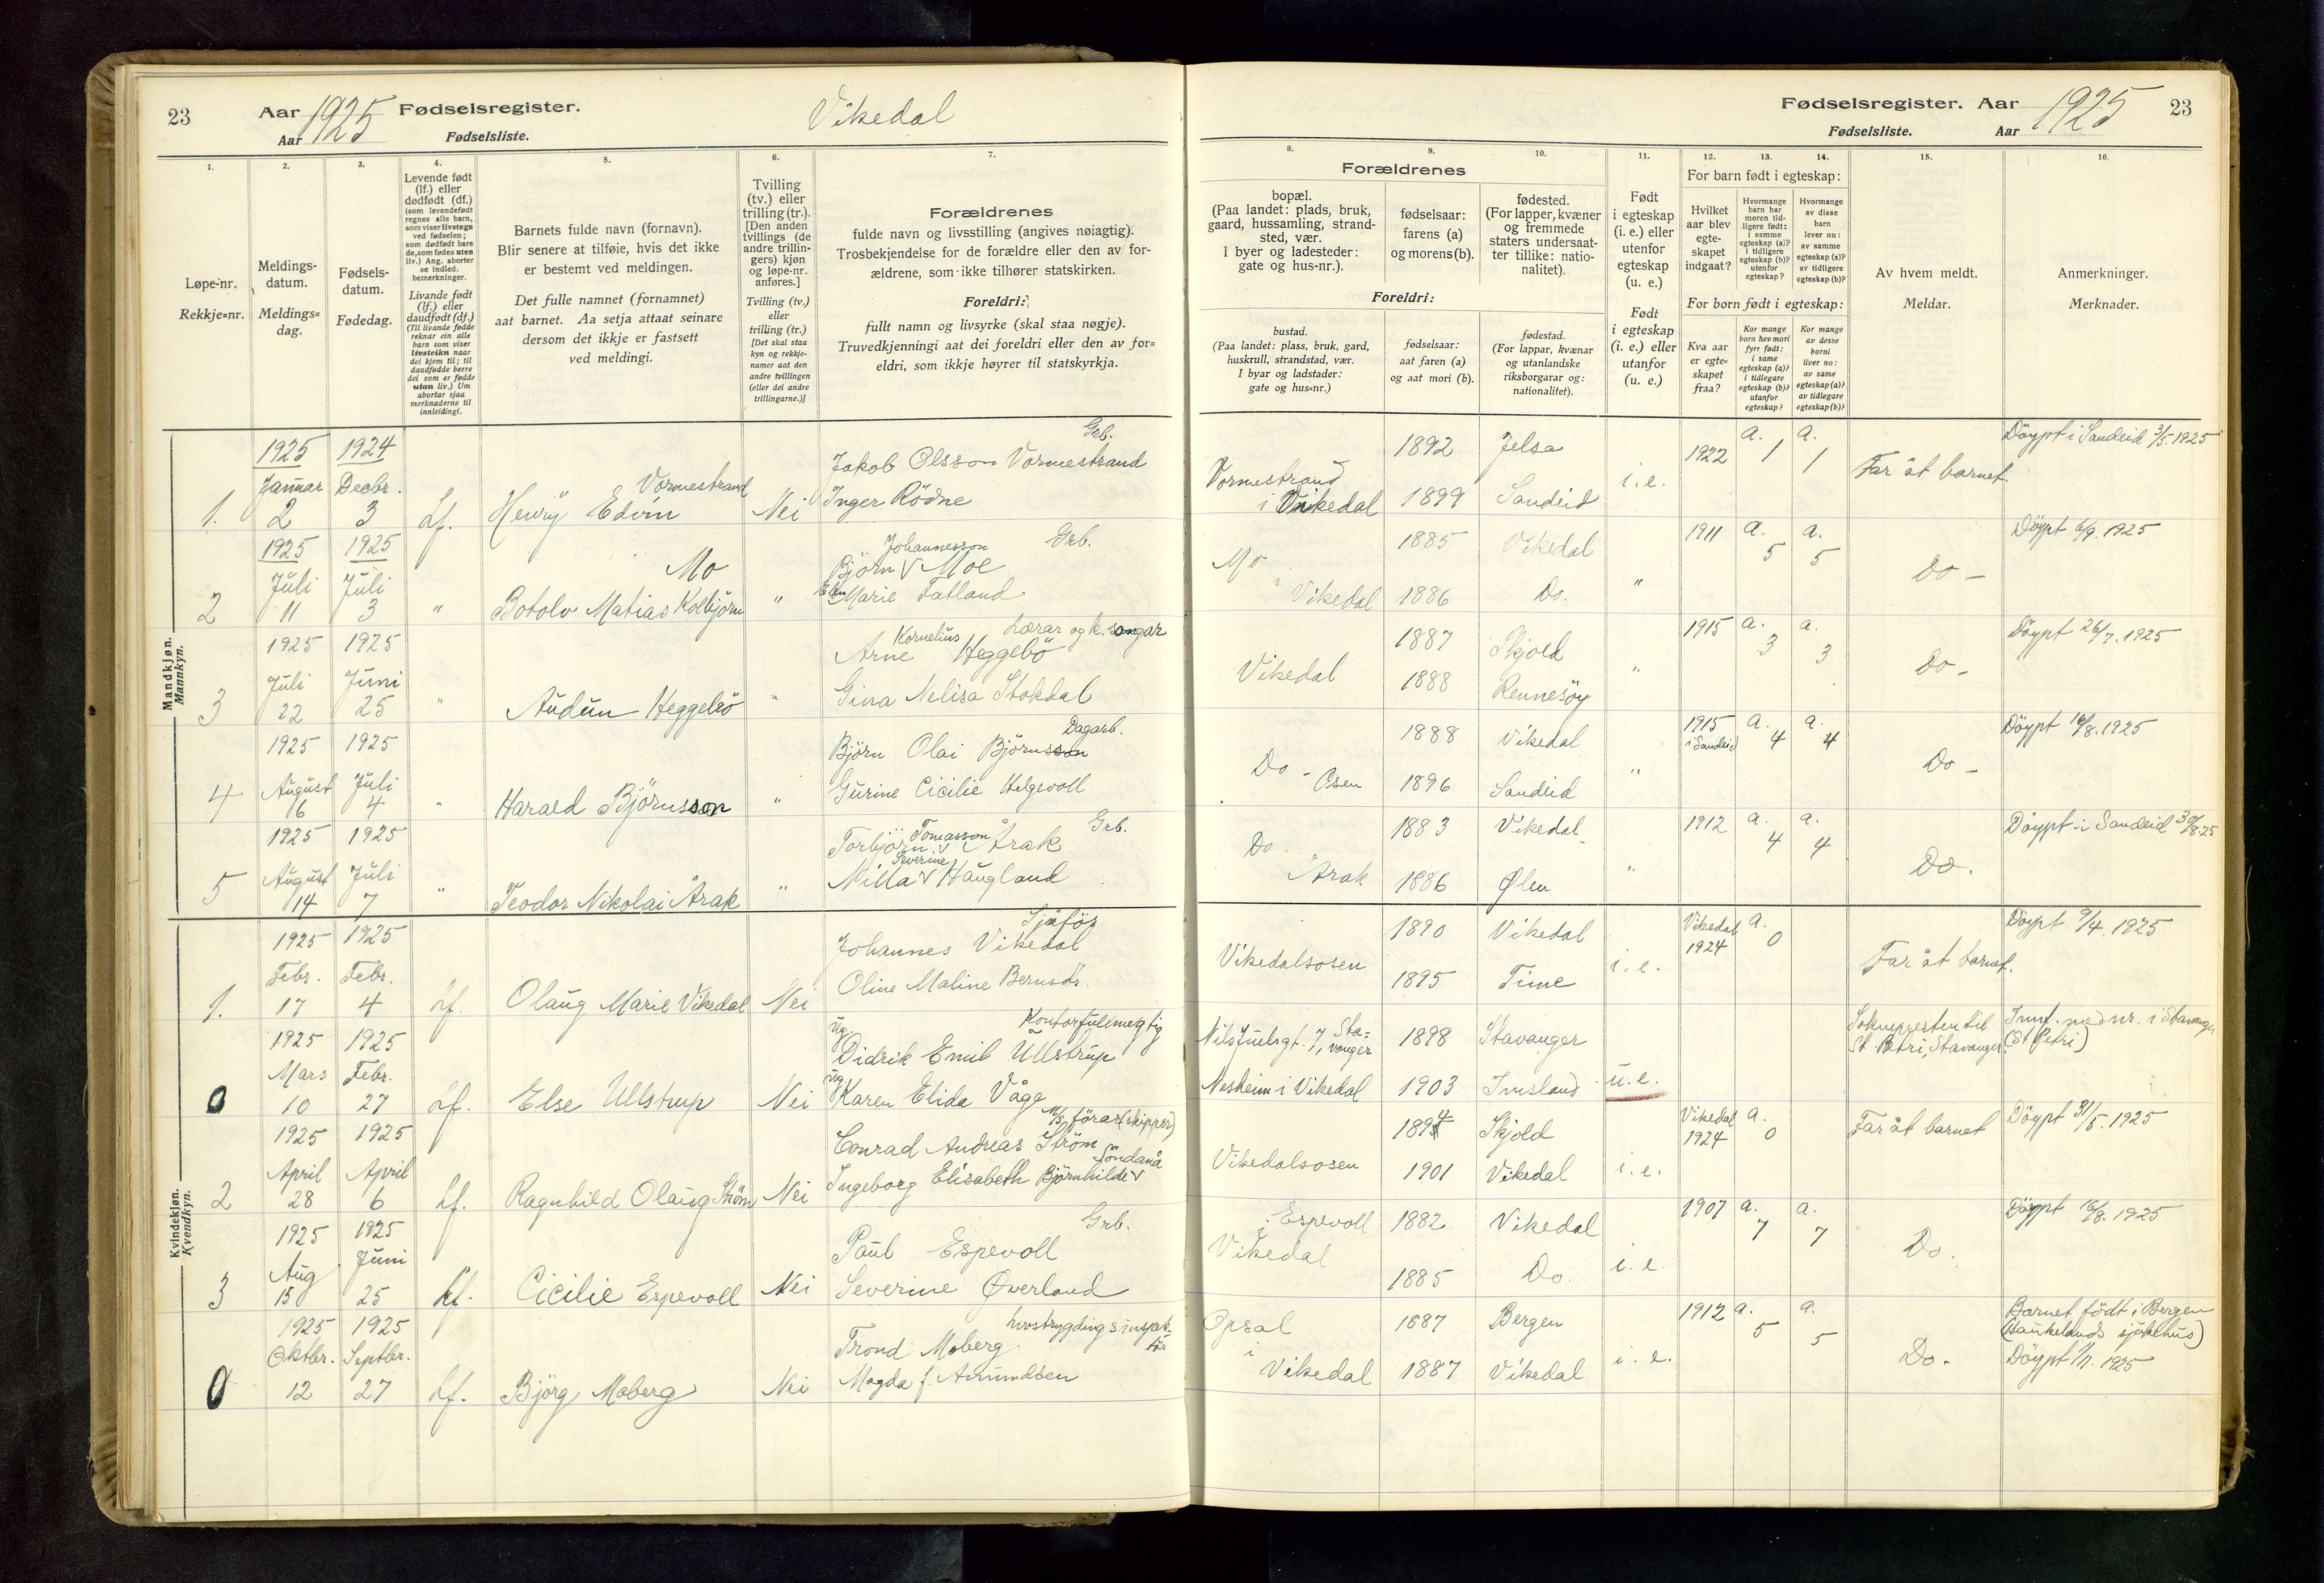 23 Aar 1925 Fødselsregister. Vikedal
Aar Fødselsliste.
Fødselsregister. Aar 1925 23
Fødselsliste. Aar
1.
Løpe-nr.
Rekkje=nr.
2.
Meldings-
datum.
Meldings=
dag.
3.
Fødsels-
datum.
Fødedag.
4.
Levende født
(lf.) eller
dødfødt (df.)
(som levendefødt
regnes alle barn,
som viser livstegn
ved fødselen;
som dødfødt bare
de, som fødes uten
liv.) Ang. aborter
se indled.
bemerkninger.
Livande født
(lf.) eller
daudfødt (df.)
(Til livande fødde
reknar ein alle
barn som viser
livsteikn naar
dei kjem til; til
daudfødde berre
dei som er fødde
utan liv.) Um
abortar sjaa
merknaderne til
innleidingi.
5.
Barnets fulde navn (fornavn).
Blir senere at tilføie, hvis det ikke
er bestemt ved meldingen.
Det fulle namnet (fornamnet)
aat barnet. Aa setja attaat seinare
dersom det ikkje er fastsett
ved meldingi.
6.
Tvilling
(tv.) eller
trilling (tr.).
[Den anden
tvillings (de
andre trillin-
gers) kjøn
og løpe-nr.
anføres.]
Tvilling (tv.)
eller
trilling (tr.)
[Det skal staa
kyn og rekkje-
numer aat den
andre tvillingen
(eller dei andre
trillingarne.)]
7.
Forældrenes
fulde navn og livsstilling (angives nøiagtig).
Trosbekjendelse for de forældre eller den av for-
ældrene, som ikke tilhører statskirken.
Foreldri:
fullt namn og livsyrke (skal staa nøgje).
Truvedkjenningi aat dei foreldri eller den av for=
eldri, som ikkje høyrer til statskyrkja.
Forældrenes
8.
bopæl.
(Paa landet: plads, bruk,
gaard, hussamling, strand-
sted, vær.
I byer og ladesteder:
gate og hus-nr.).
9.
fødselsaar:
farens (a)
og morens (b).
10.
fødested.
(For lapper, kvæner
og fremmede
staters undersaat-
ter tillike: natio-
nalitet).
Foreldri:
bustad.
(Paa landet: plass, bruk, gard,
huskrull, strandstad, vær.
I byar og ladstader:
gate og hus=nr.)
fødselsaar:
aat faren (a)
og aat mori (b).
fødestad.
(For lappar, kvænar
og utanlandske
riksborgarar og:
nationalitet).
11.
Født
i egteskap
(i. e.) eller
utenfor
egteskap
(u. e.)
Født
i egteskap
(i. e.) eller
utanfor
(u. e.)
12. 13. 14.
For barn født i egteskap:
Hvilket
aar blev
egte-
skapet
indgaat?
Hvormange
barn har
moren tid-
ligere født:
i samme
egteskap (a)?
i tidligere
egteskap (b)?
utenfor
egteskap?
Hvormange
av disse
barn
lever nu:
av samme
egteskap (a)?
av tidligere
egteskap (b)?
For born født i egteskap:
Kva aar
er egte=
skapet
fraa?
Kor mange
born hev mori
fyrr født:
i same
egteskap (a)?
i tidlegare
egteskap (b)?
utanfor
egteskap?
Kor mange
av desse
borni
liver no:
av same
egteskap (a)?
av tidlegare
egteskap (b)?
15.
Av hvem meldt.
Meldar.
16.
Anmerkninger.
Merknader.
Mandkjøn.
Mannkyn.
1. 1925 Januar 2 1924 Decbr. 3 Lf. Henrÿ Edvin Vormestrand Nei
Grb.
Jakob Olsson Vormestrand
Inger Rödne
Vormestrand
i Vikedal
1892 Jelsa
1899 Sandeid
i.e. 1922 a. 1 a. 1 Far åt barnet. Döypt i Sandeid 3/5. 1925
2 1925 Juli 11 1925 Juli 3 " Botolv Matias Kolbjörn Mo "
Johannesson Grb.
Björn V Moe
Elen Marie Fatland
Mo
i Vikedal
1885 Vikedal
1886 Do.
" 1911 a. 5 a. 5 Do - Döypt 6/9. 1925
3 1925 Juli 22 1925 Juni 25 " Audun Heggebö "
Kornelius Lærar og k. songar
Arne Heggebö
Gina Nelisa Stokdal
Vikedal
1887 Skjold
1888 Rennesöy
" 1915 a. 3 a. 3 Do - Döypt 26/7. 1925
4 1925 August 6 1925 Juli 4 " Harald Björnsson "
Dagarb.
Björn Olai Björnsson
Gurine Cicilie Helgevoll
Do - Osen
1888 Vikedal
1896 Sandeid
" 1915 i Sandeid a. 4 a. 4 Do - Döypt 16/8. 1925
5 1925 August 14 1925 Juli 7 " Teodor Nikolai Årak "
Tomasson Grb.
Torbjörn V Årak
Severine
Milla V Haugland
Do.
Årak
1883 Vikedal
1886 Ølen
" 1912 a. 4 a. 4 Do. Döypt i Sandeid 30/8.25
Kvindekjøn.
Kvendkyn.
1. 1925 Febr. 17 1925 Febr. 4 Lf. Olaug Marie Vikedal Nei
Sjåför
Johannes Vikedal
Oline Maline Bernsdr.
Vikedalsosen
1890 Vikedal
1895 Time
i.e. Vikedal 1924 a. 0 Far åt barnet. Döypt 9/4. 1925
0 1925 Mars 10 1925 Febr. 27 Lf. Else Ullstrup Nei
Ug. Kontorfullmegtig
Didrik Emil Ullstrup
Ug.
Karen Elida Våge
Nils Juelsgt. 7, Sta=
vanger
Nesheim i Vikedal
1898 Stavanger
1903 Imsland
u.e.
Sokneprestentil
St Petri, Stavanger.
Innf. med nr. i Stavanger
(St Petri)
2 1925 April 28 1925 April 6 Lf. Ragnhild Olaug Ström Nei
M/S förar (skipper)
Conrad Andreas Ström
Söndanå
Ingeborg Elisabeth Björnhilde V
Vikedalsosen
1894 Skjold
1901 Vikedal
i.e. Vikedal 1924 a. 0 Far åt barnet Döypt 31/5. 1925
3 1925 Aug 15 1925 Juni 25 Lf. Cicilie Espevoll Nei
Grb.
Paul Espevoll
Severine Øverland
Espevoll
i
Vikedal
1882 Vikedal
1885 Do.
i.e. 1907 a. 7 a. 7 Do. Döypt 16/8. 1925
0 1925 Oktbr. 12 1925 Septbr. 27 Lf. Björg Moberg Nei
Trond Moberg
Magda f. Amundsen
Opsal
i
Vikedal
1887 Bergen
1887 Vikedal
i.e. 1912 a. 5 a. 5 Do.
Barnet födt i Bergen
(Haukelands sjukehus)
Döypt 1/11. 1925